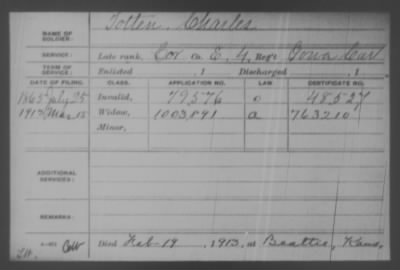 NAME OF SOLDIER: Totten Charles
SERVICE: Late rank, Cor Co. E, 4, Reg't Iowa Cav
TERM OF SERVICE: Enlisted , 1 Discharged , 1
DATE OF FILING. CLASS. APPLICATION NO. LAW CERTIFICATE NO.
1865 July 25 Invalid, 79576 o 48527
1913 Mar 15 Widow, 1003891 a 763210
Minor,
ADDITIONAL SERVICES:
REMARKS:
Died Feb 19, 1913, at Beattie, Kans,